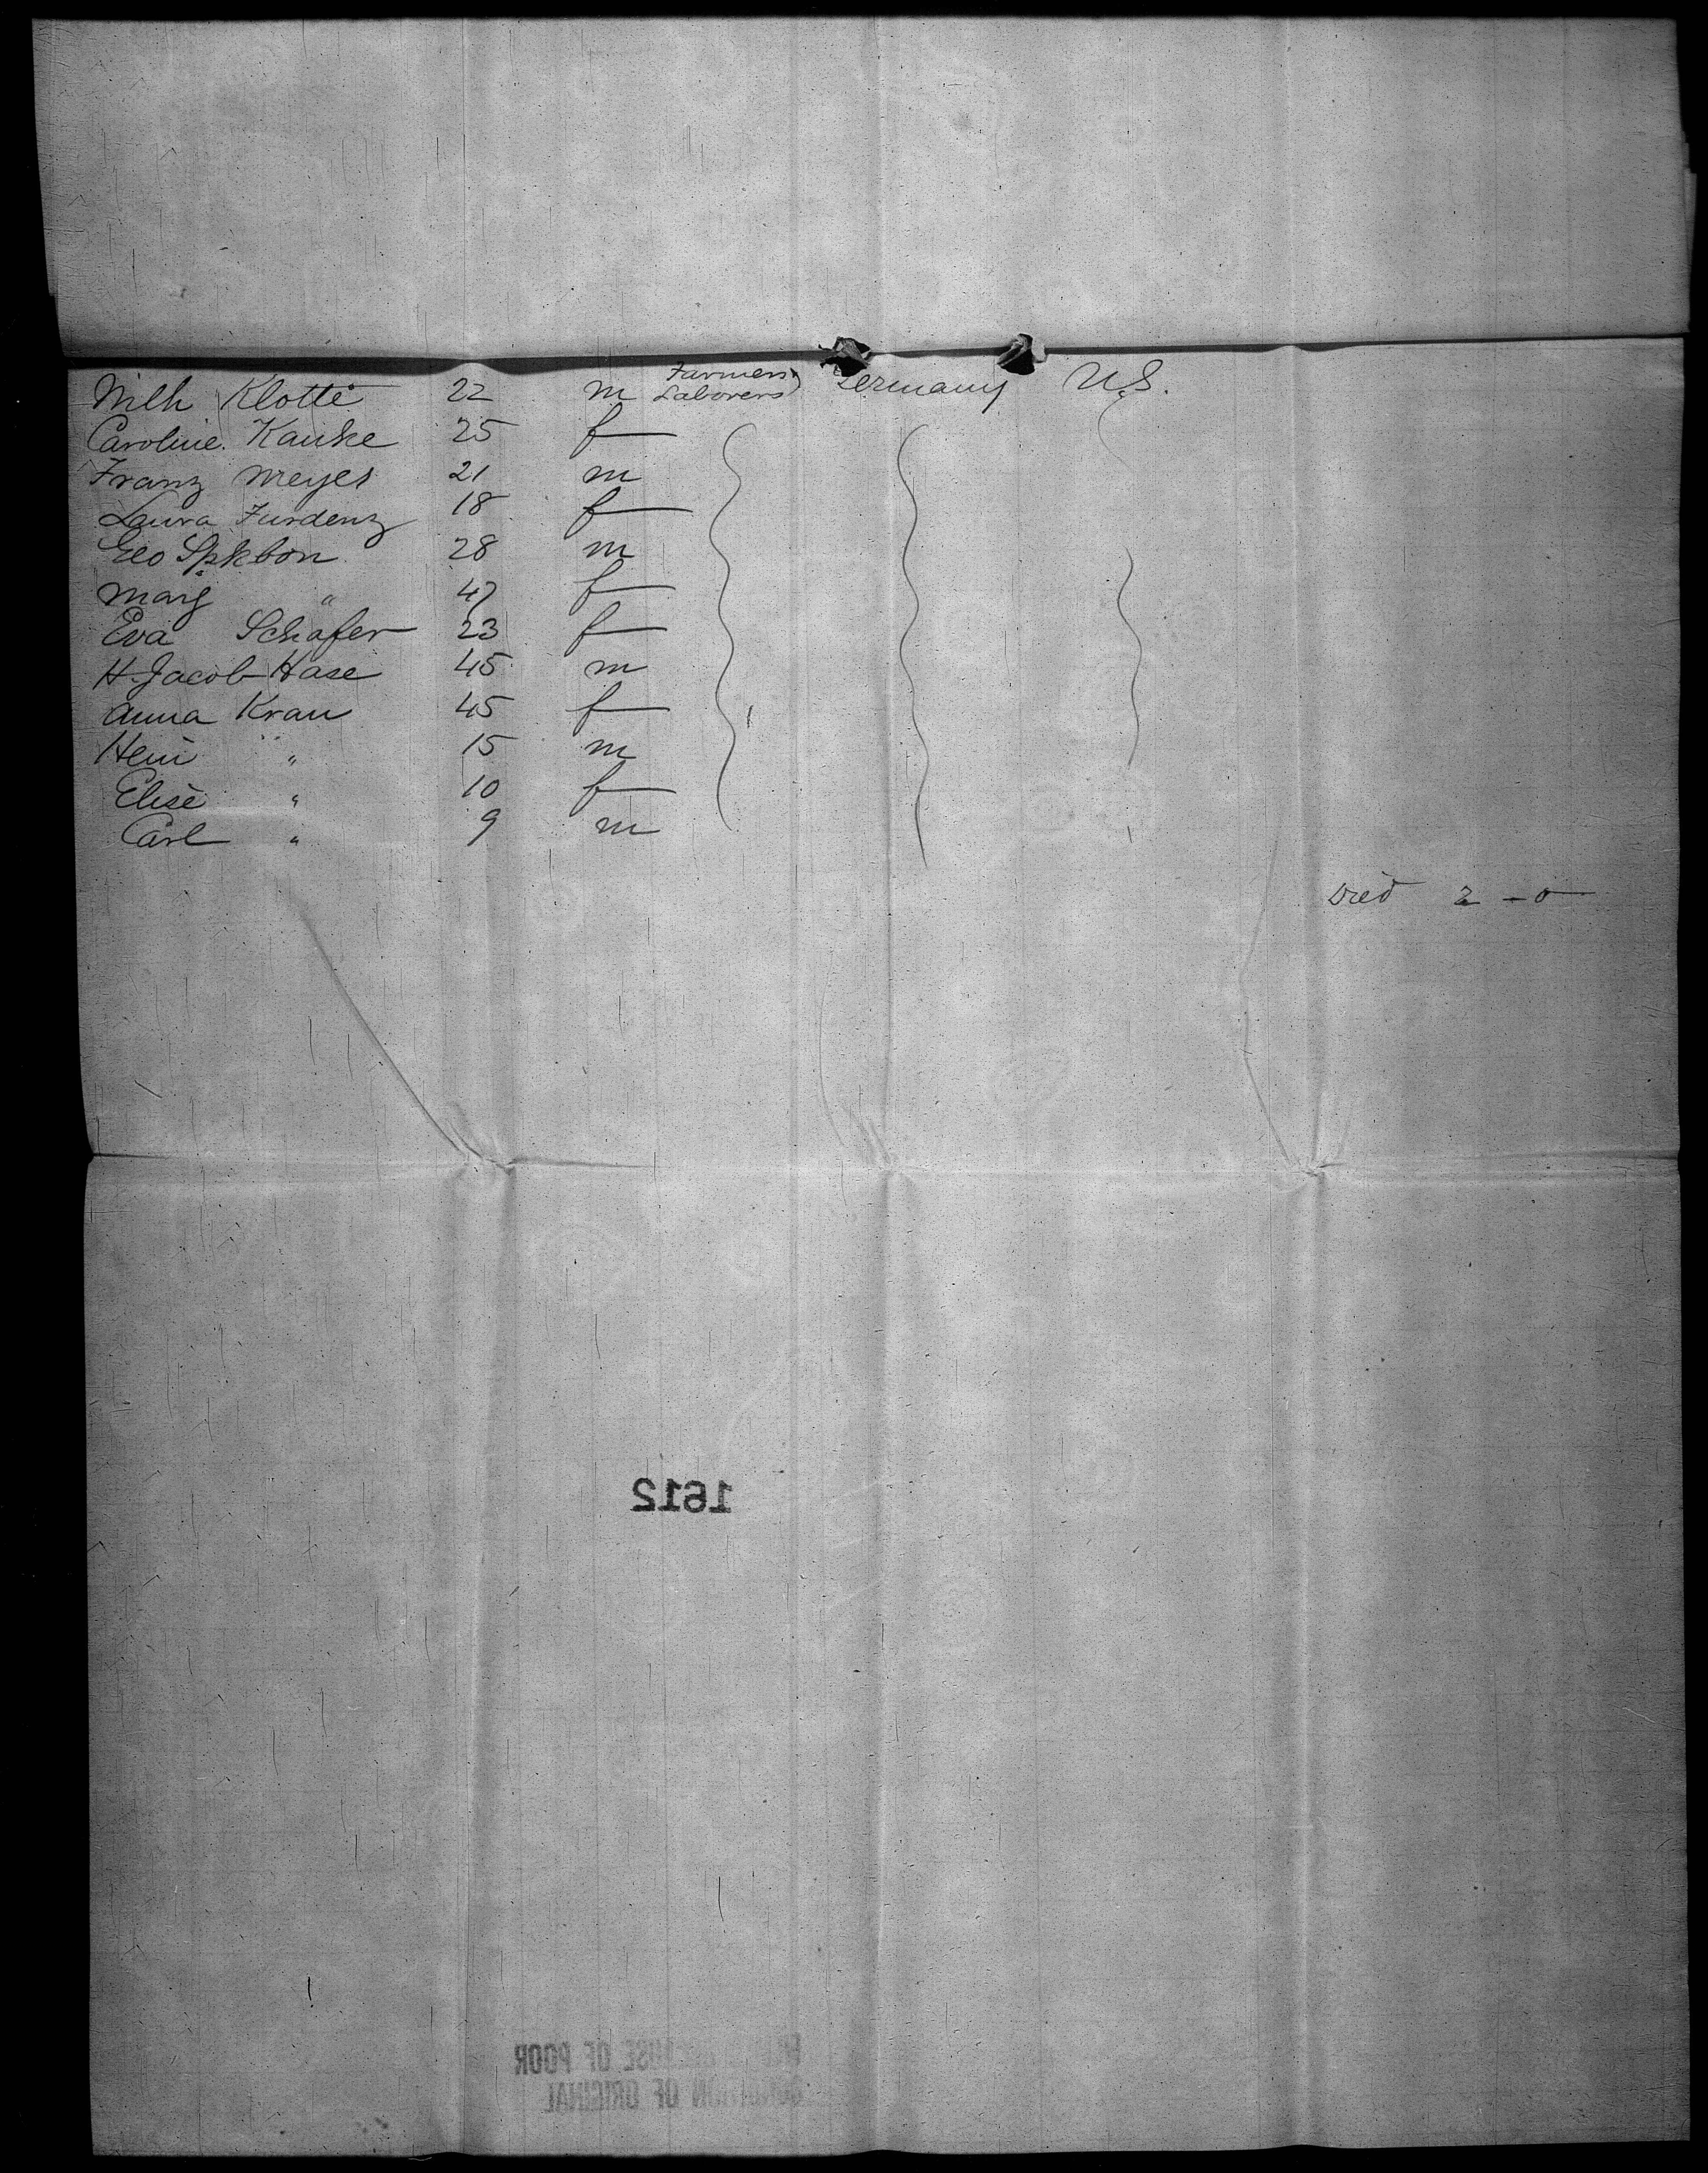 Wilh Klotte 22 m Farmers Laborers Germany U.S.
Caroline Kauke 25 f
Franz Meyes 21 m
Laura Furdenz 18 f
Geo Spkbon 28 m
Marg " 47 f
Eva Schafer 23 f
H Jacob Hase 45 m
Anna Krau 45 f
Hein " 15 m
Elise " 10 f
Carl " 9 m
Died 2 - 0
1612
BECAUSE OF POOR
CONDITION OF ORIGINAL